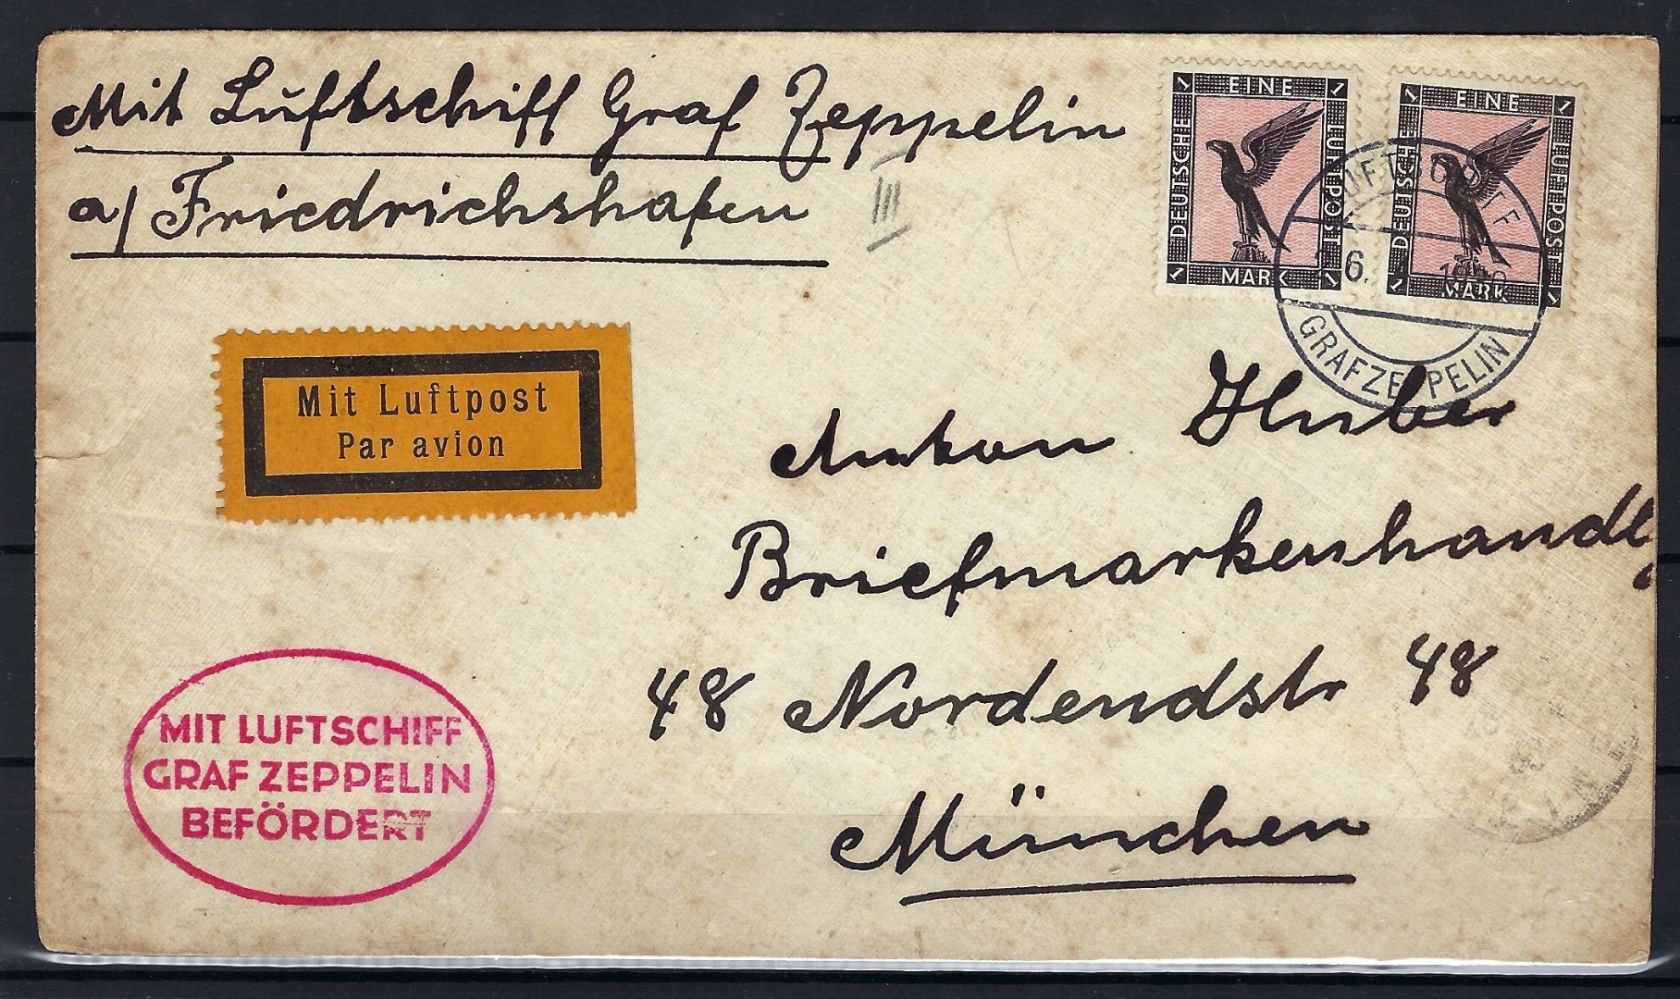 Mit Luftschiff Graf Zeppelin
a/ Friedrichshafen
III
1 EINE 1
DEUTSCHE
LUFTPOST
1 MARK 1
1 EINE 1
DEUTSCHE
LUFTPOST
1 MARK 1
LUFTSCHIFF
6.
GRAF ZEPPELIN
Mit Luftpost
Par avion
Anton Huber
Briefmarkenhandlg
48 Nordendstr 48
München
MIT LUFTSCHIFF
GRAF ZEPPELIN
BEFÖRDERT